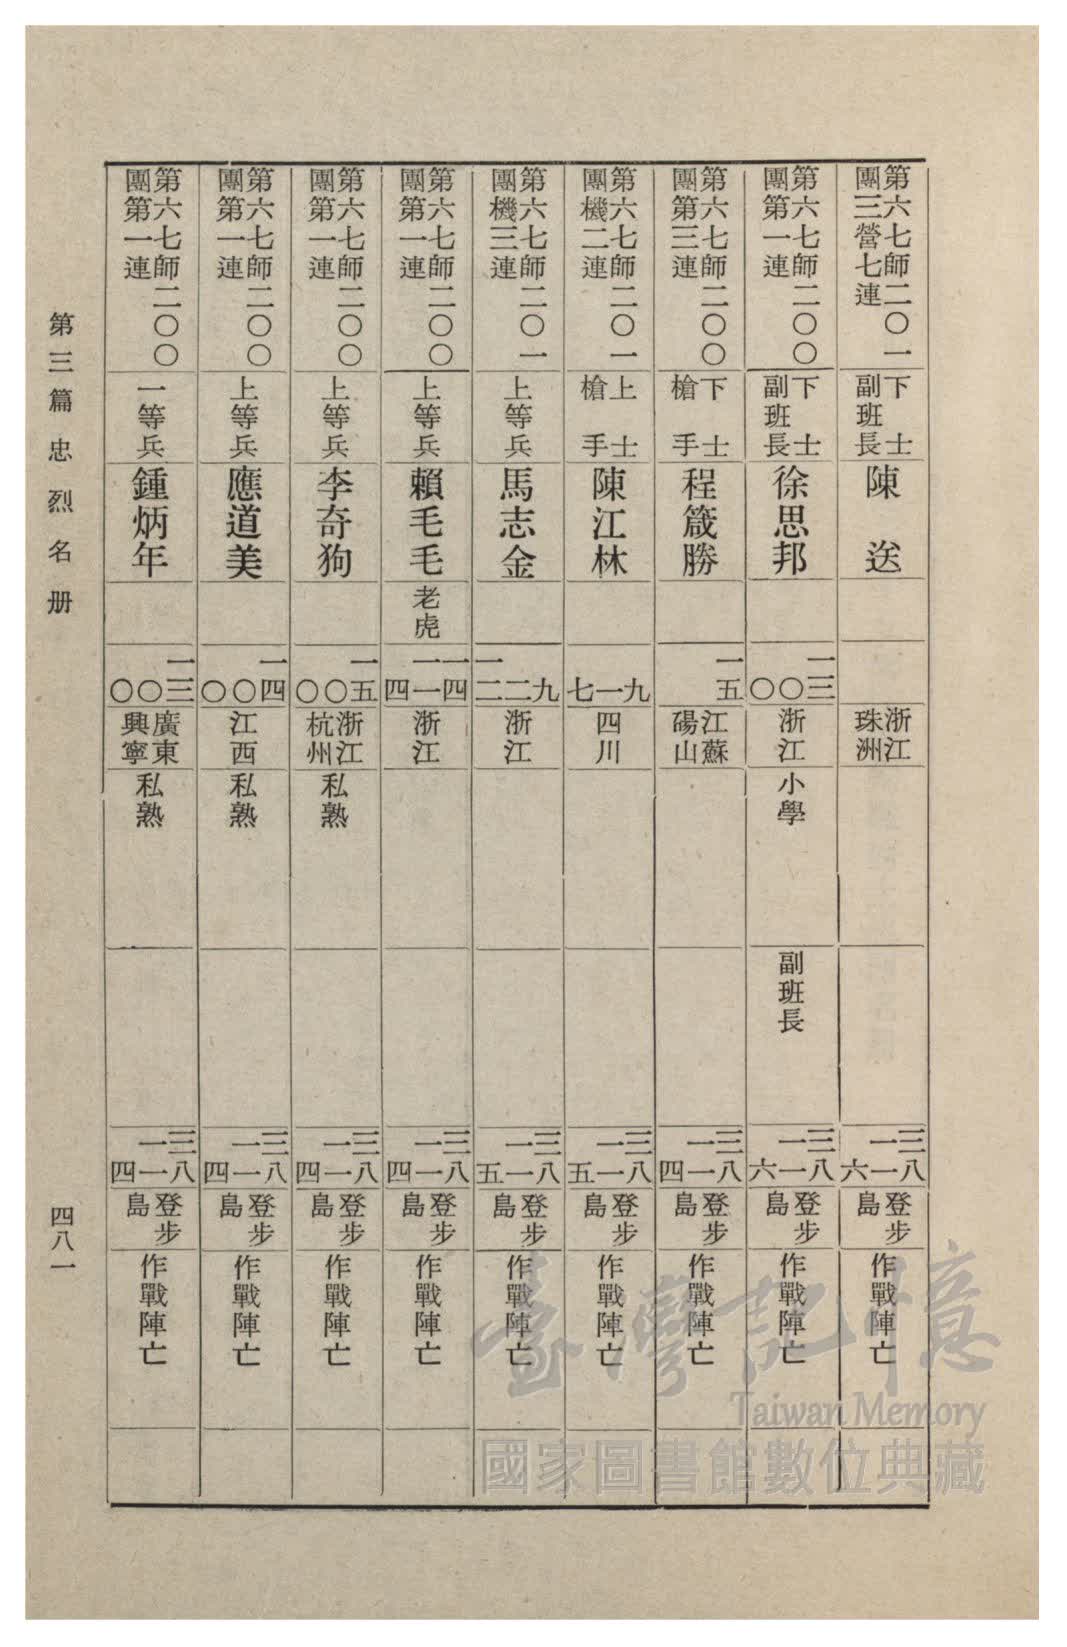 第六七師二〇一
團三營七連
下士
副班長
陳送
浙江
珠洲
三八
一一六
登步
島
作戰陣亡
第六七師二〇〇
團第一連
下士
副班長
徐思邦
一三〇〇
浙江
小學
副班長
三八
一一六
登步
島
作戰陣亡
第六七師二〇〇
團第三連
下士
槍手
程箴勝
一五
江蘇
碭山
三八
一一四
登步
島
作戰陣亡
第六七師二〇一
團機二連
上士
槍手
陳江林
九一七
四川
三八
一一五
登步
島
作戰陣亡
第六七師二〇一
團機三連
上等兵
馬志金
九二一二
浙江
三八
一一五
登步
島
作戰陣亡
第六七師二〇〇
團第一連
上等兵
賴毛毛
老虎
一四一一四
浙江
三八
一一四
登步
島
作戰陣亡
第六七師二〇〇
團第一連
上等兵
李奇狗
一五〇〇
浙江
杭州
私熟
三八
一一四
登步
島
作戰陣亡
第六七師二〇〇
團第一連
上等兵
應道美
一四〇〇
江西
私熟
三八
一一四
登步
島
作戰陣亡
第六七師二〇〇
團第一連
一等兵
鍾炳年
一三〇〇
廣東
興寧
私熟
三八
一一四
登步
島
作戰陣亡
第三篇 忠烈名册
四八一
臺灣記憶
Taiwan Memory
國家圖書館數位典藏